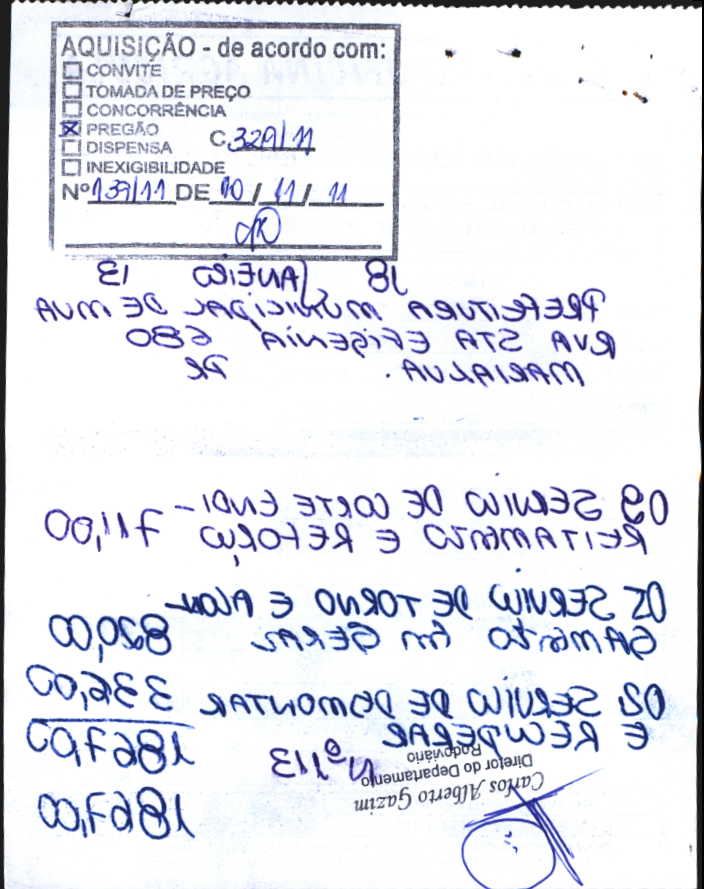 AQUISIÇÃO - de acordo com:
CONVITE
TOMADA DE PREÇO
CONCORRÊNCIA
PREGÃO
C 329/11
DISPENSA
INEXIGIBILIDADE
Nº 139/11 DE 10 / 11 / 11
18 JANEIRO 13
PREFEITURA MUNICIPAL DE MVA
RUA STA EFIGENIA 680
MARIALVA. PR
09 SERVIÇO DE CORTE ENDI-
REITAMENTO E REFORÇO 711,00
05 SERVIÇO DE TORNO E ALON-
GAMENTO EM GERAL 820,00
02 SERVIÇO DE DSMONTAR 336,00
E RECUPERAR 1867,00
Nº 113
1867,00
Carlos Alberto Gazim
Diretor do Departamento
Rodoviário